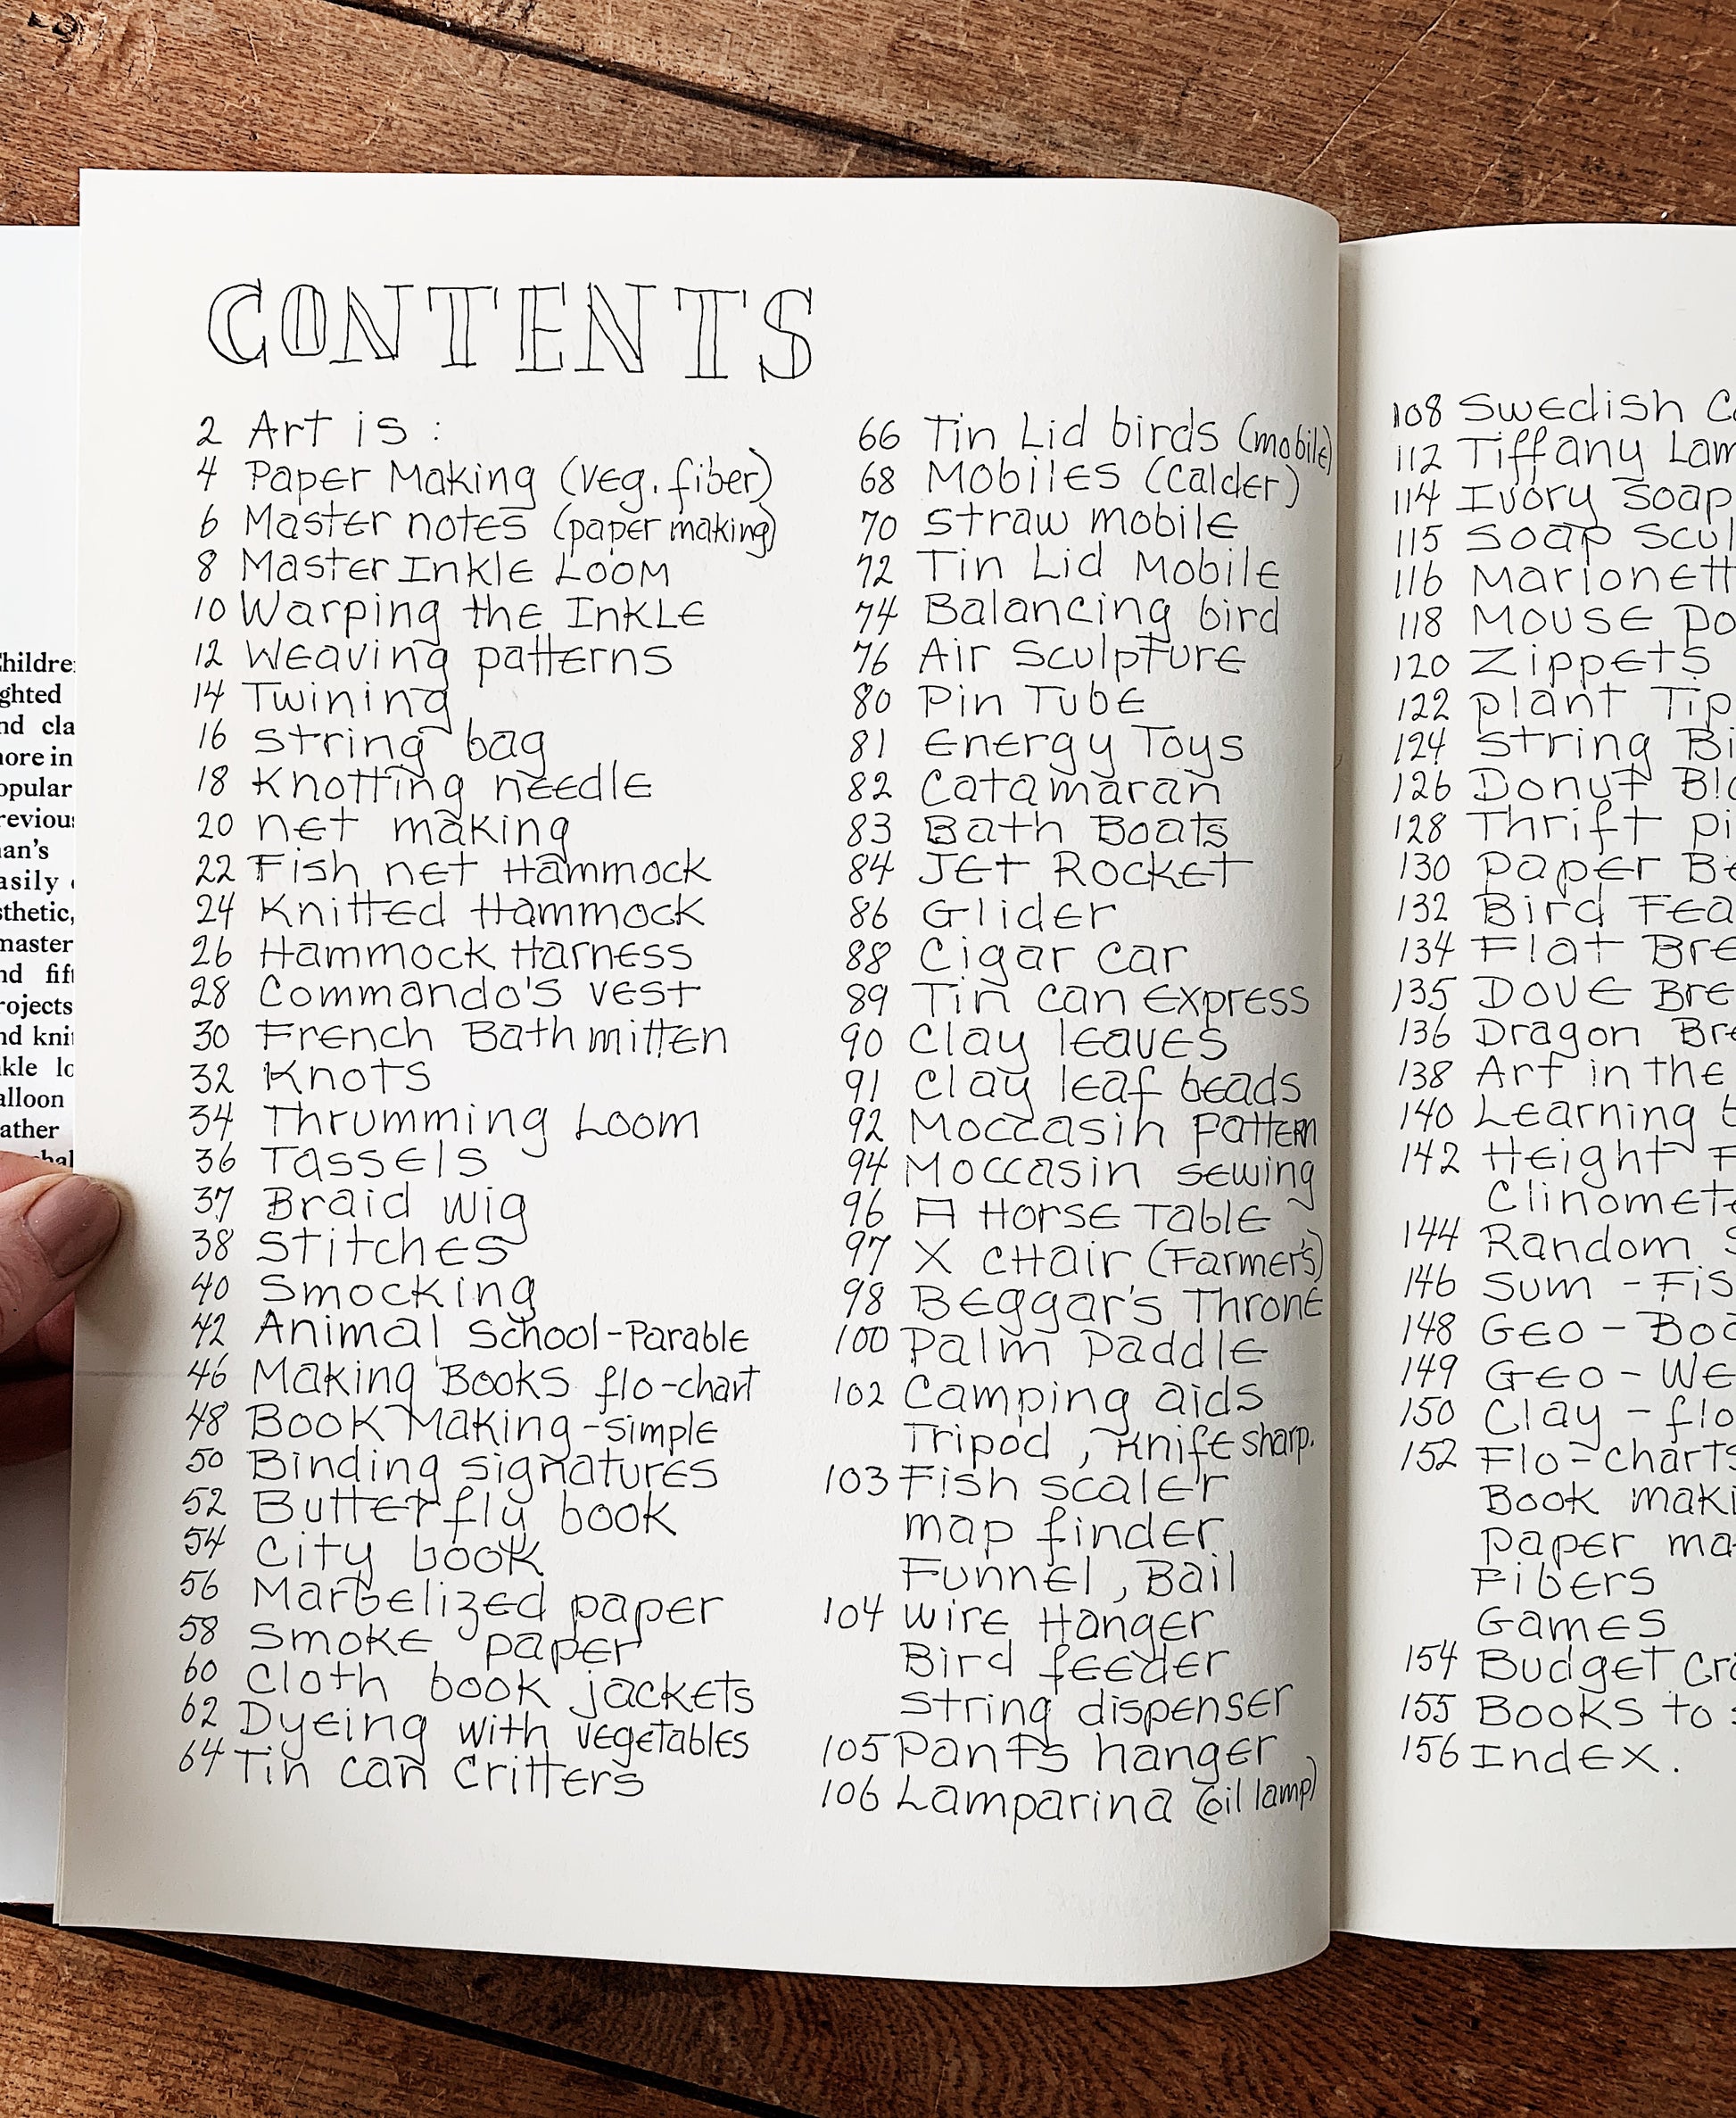 ghted
nd cla
ore in
opular
an's
asily
sthetic,
master
nd
rojects
nd
alloon
ather
CONTENTS
2 Art is :
4 Paper Making (veg. fiber)
6 Master notes (paper making)
8 Master Inkle Loom
10 Warping the Inkle
12 Weaving patterns
14 Twining
16 String bag
18 Knotting needle
20 net making
22 Fish net Hammock
24 Knitted Hammock
26 Hammock Harness
28 Commando's vest
30 French Bath mitten
32 Knots
34 Thrumming Loom
36 Tassels
37 Braid wig
38 Stitches
40 Smocking
42 Animal School-Parable
46 Making Books flo-chart
48 Book Making-simple
50 Binding signatures
52 Butterfly book
54 City book
56 Marbelized paper
58 Smoke paper
60 Cloth book jackets
62 Dyeing with vegetables
64 Tin can Critters
66 Tin Lid birds (mobile)
68 Mobiles (Calder)
70 Straw mobile
72 Tin Lid Mobile
74 Balancing bird
76 Air Sculpture
80 Pin Tube
81 Energy Toys
82 Catamaran
83 Bath Boats
84 Jet Rocket
86 Glider
88 Cigar car
89 Tin can express
90 Clay leaves
91 Clay leaf beads
92 Moccasin Pattern
94 Moccasin sewing
96 A Horse Table
97 X Chair (Farmer's)
98 Beggar's Throne
100 Palm Paddle
102 Camping aids
Tripod , Knife sharp.
103 Fish scaler
map finder
Funnel , Bail
104 wire Hanger
Bird feeder
String dispenser
105 Pants hanger
106 Lamparina (oil lamp)
108 Swedish
112 Tiffany Lam
114 Ivory Soap
115 Soap Scul
116 Marionett
118 Mouse Po
120 Zippets
122 Plant Tip
124 String Bi
126 Donut Blo
128 Thrift Pi
130 Paper Be
132 Bird Fea
134 Flat Bre
135 Dove Bre
136 Dragon Bre
138 Art in the
140 Learning
142 Height F
Clinomete
144 Random S
146 Sum - Fis
148 Geo - Boa
149 Geo - We
150 Clay - flo
152 Flo-charts
Book maki
Paper ma
Fibers
Games
154 Budget Cra
155 Books to
156 Index.